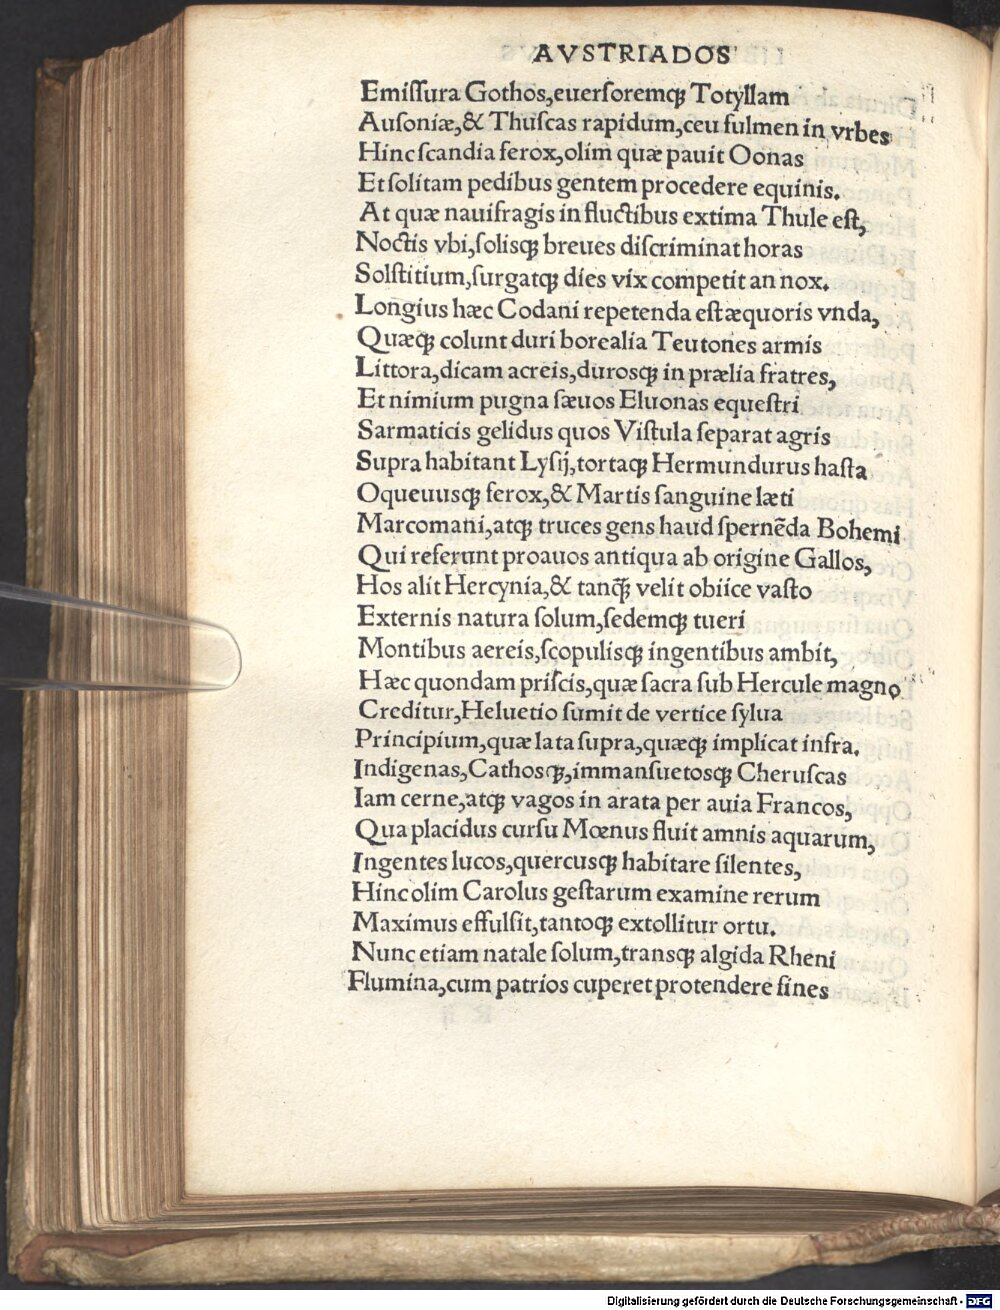 AVSTRIADOS
Emiſſura Gothos,euerſoremqꝫ Totyllam
Auſoniæ,& Thuſcas rapidum,ceu fulmen in vrbes
Hinc ſcandia ferox,olim quæ pauit Oonas
Et ſolitam pedibus gentem procedere equinis.
At quæ nauifragis in fluctibus extima Thule eſt,
Noctis vbi,ſolisqꝫ breues diſcriminat horas
Solſtitium,ſurgatqꝫ dies vix competit an nox.
Longius hæc Codani repetenda eſt æquoris vnda,
Quæqꝫ colunt duri borealia Teutones armis
Littora,dicam acreis,durosqꝫ in prælia fratres,
Et nimium pugna ſæuos Eluonas equeſtri
Sarmaticis gelidus quos Viſtula ſeparat agris
Supra habitant Lyſij,tortaqꝫ Hermundurus haſta
Oqueuusqꝫ ferox,& Martis ſanguine læti
Marcomani,atqꝫ truces gens haud ſpernēda Bohemi
Qui referunt proauos antiqua ab origine Gallos,
Hos alit Hercynia,& tanqꝫ̃ velit obiice vaſto
Externis natura ſolum,ſedemqꝫ tueri
Montibus aereis,ſcopulisqꝫ ingentibus ambit,
Hæc quondam priſcis,quæ ſacra ſub Hercule magno
Creditur,Heluetio ſumit de vertice ſylua
Principium,quæ lata ſupra,quæqꝫ implicat infra.
Indigenas,Cathosqꝫ,immanſuetosqꝫ Cheruſcas
Iam cerne,atqꝫ vagos in arata per auia Francos,
Qua placidus curſu Mœnus fluit amnis aquarum,
Ingentes lucos,quercusqꝫ habitare ſilentes,
Hinc olim Carolus geſtarum examine rerum
Maximus effulſit,tantoqꝫ extollitur ortu.
Nunc etiam natale ſolum,transqꝫ algida Rheni
Flumina,cum patrios cuperet protendere fines
Digitalisierung gefördert durch die Deutsche Forschungsgemeinschaft - DFG